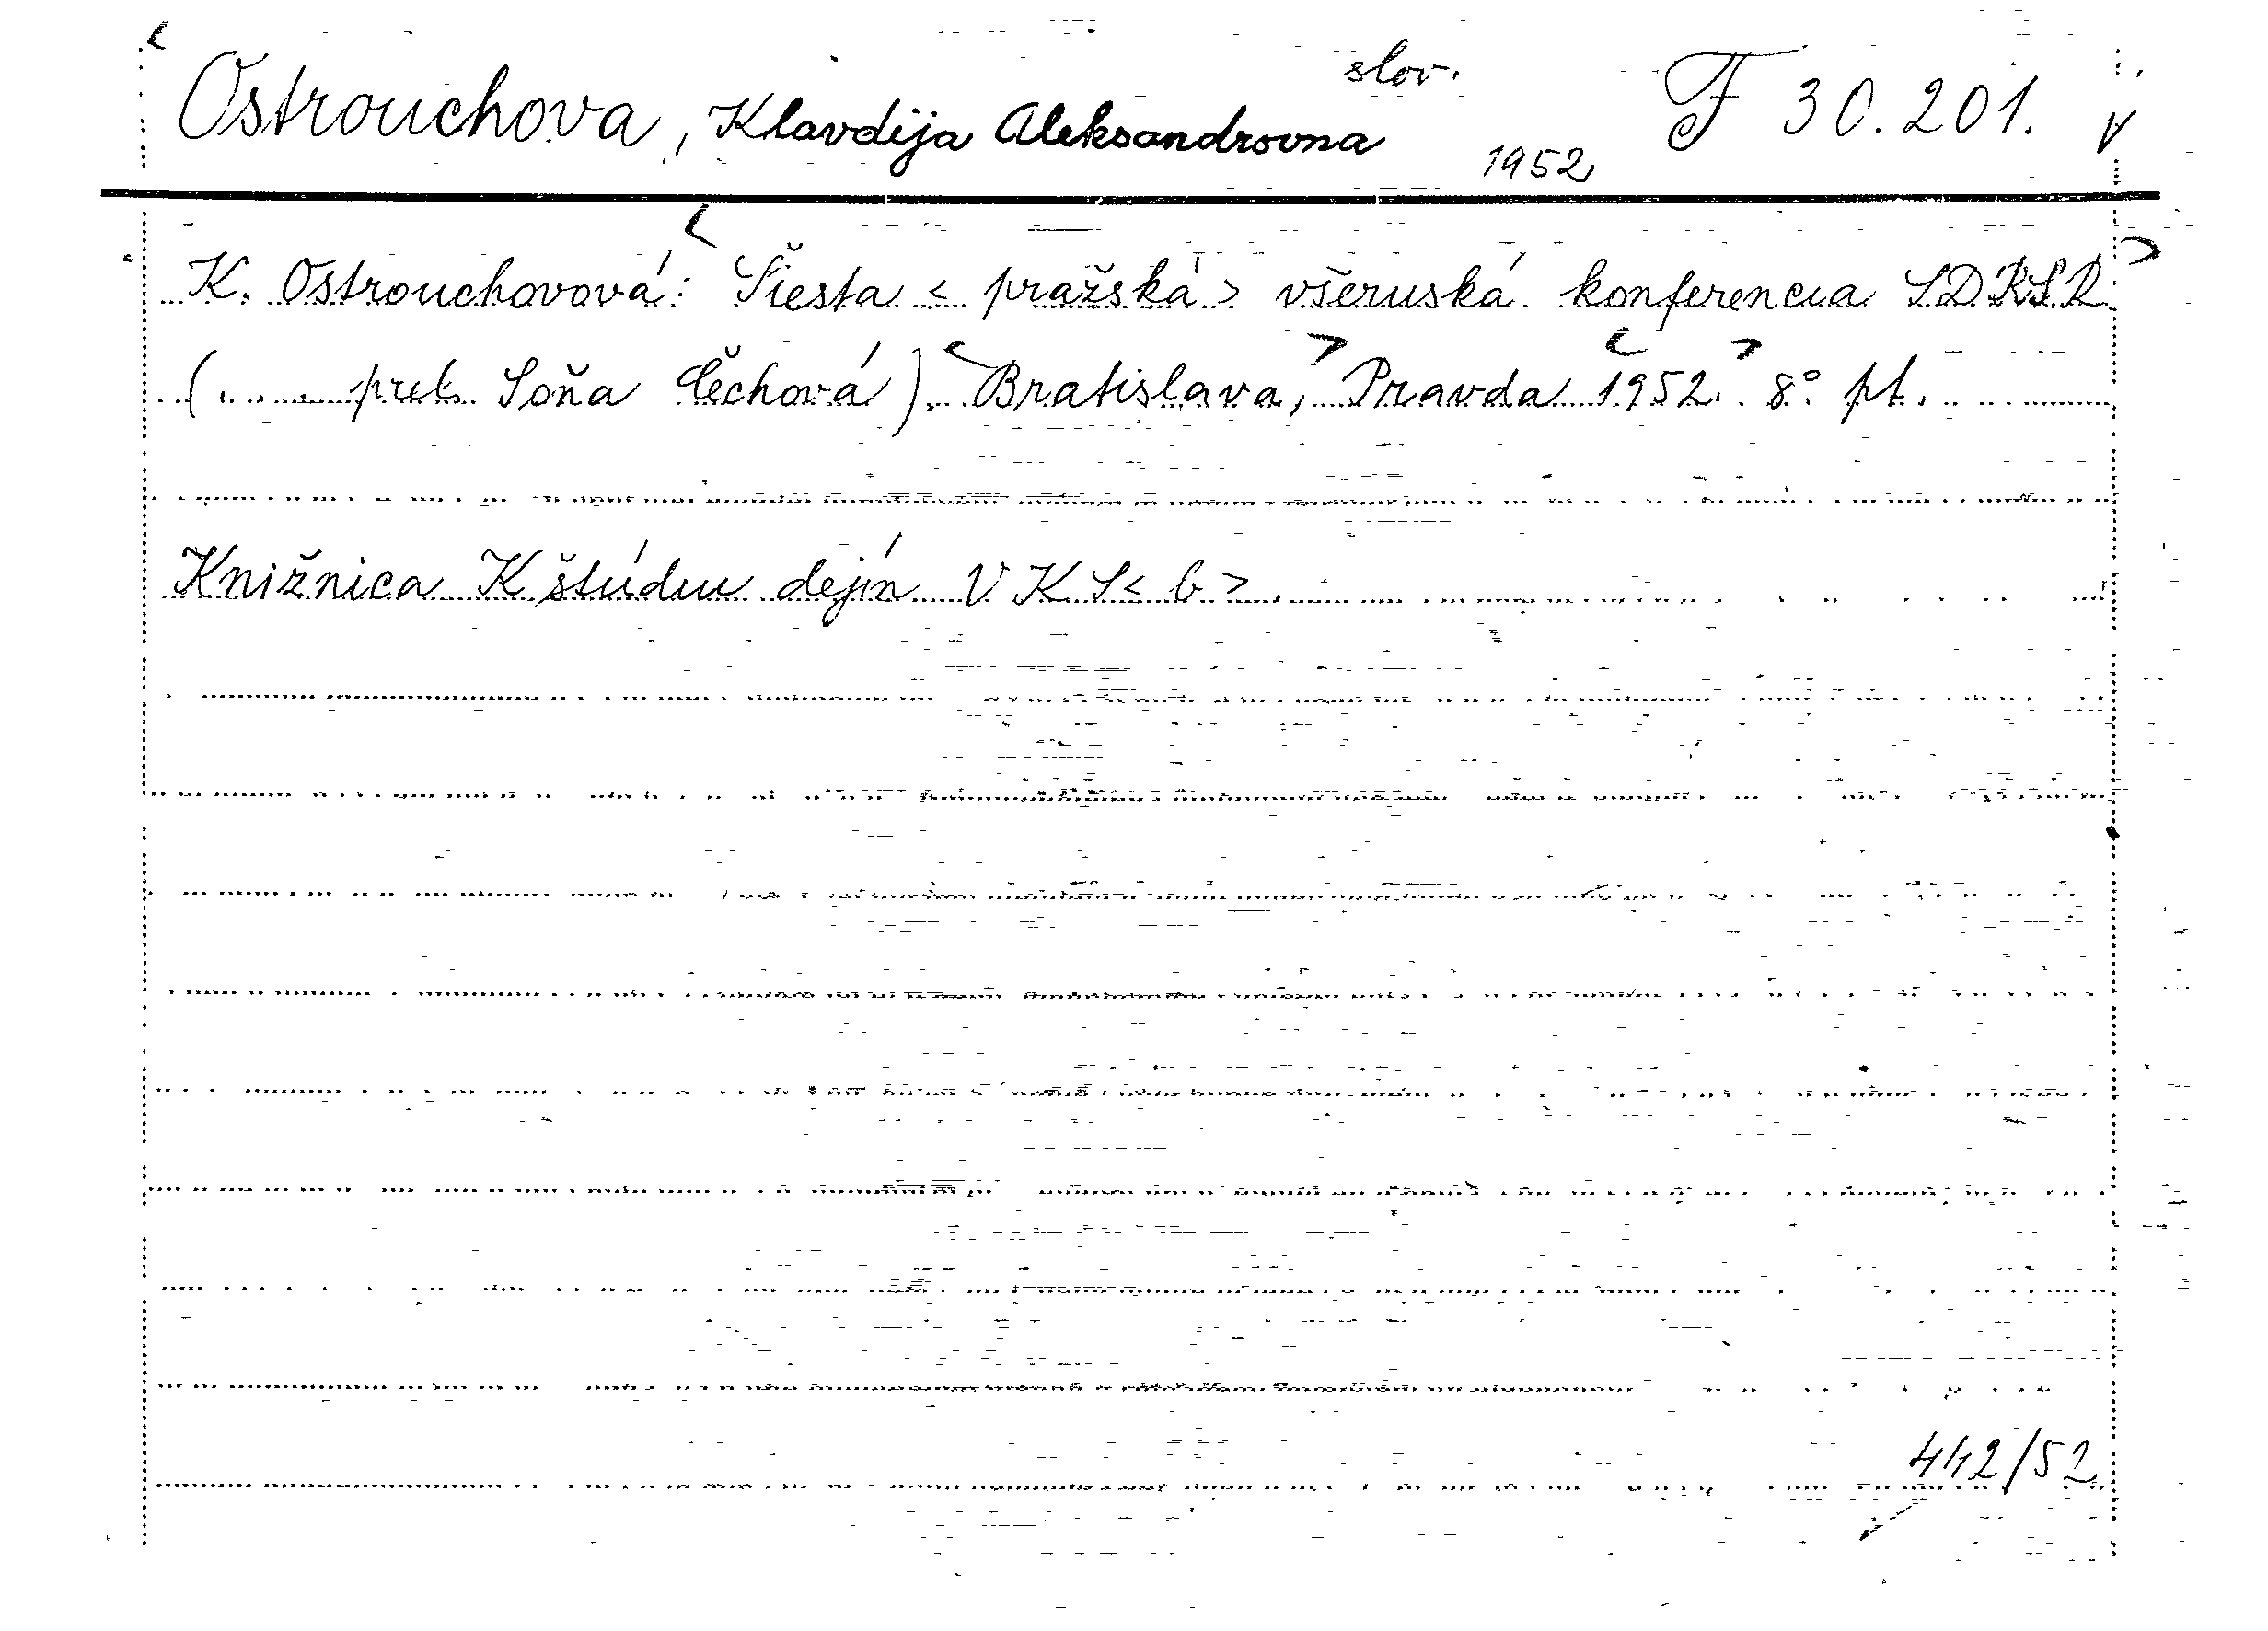 slov.
Ostrouchova, Klavdija Aleksandrovna F 30.201.
1952
K. Ostrouchovová: Šiesta <pražská> všeruská konferencia SDRSR
(... prel. Soňa Čechová). Bratislava, Pravda 1952. 8° pt.
Knižnica K štúdiu dejín VKS<b>.
442/52